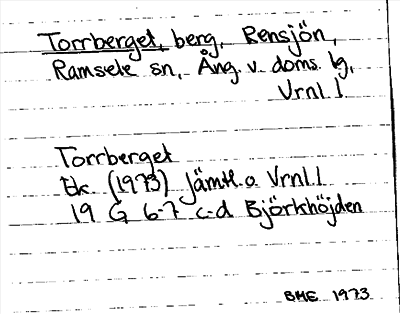 Torrberget, berg, Rensjön,
Ramsele sn, Ång. v. doms. lg,
Vrnl. l.
Torrberget
Ek (1973) Jämtl. o. Vrnl. l
19 G 6-7 c-d Björkhöjden
BME 1973